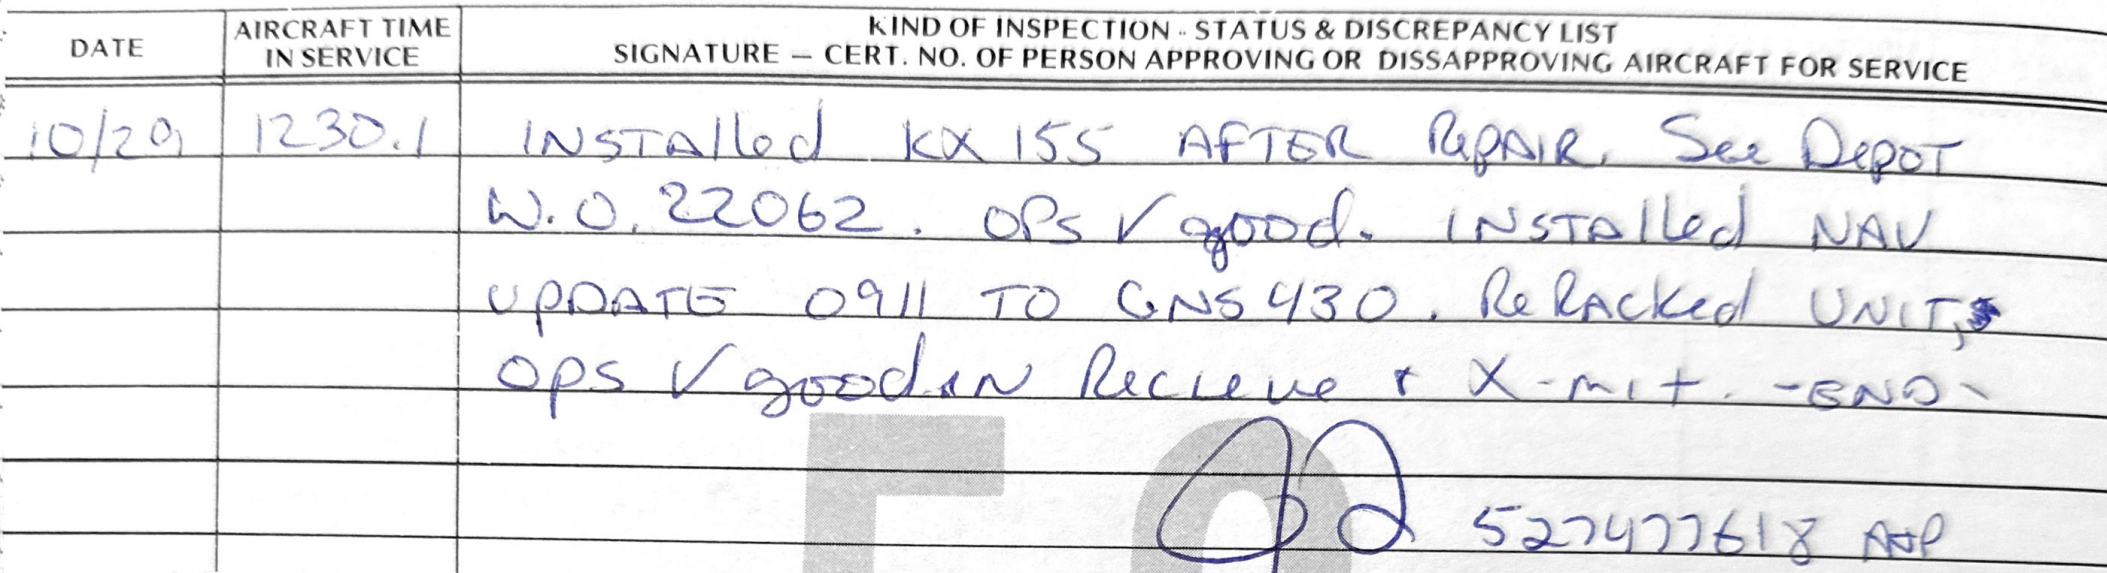 DATE
AIRCRAFT TIME
IN SERVICE
KIND OF INSPECTION - STATUS & DISCREPANCY LIST
SIGNATURE — CERT. NO. OF PERSON APPROVING OR DISSAPPROVING AIRCRAFT FOR SERVICE
10/29 1230.1 INSTAlled KX 155 AFTER RepAIR. See Depot
W.O. 22062. OPs ✓ good. INSTAlled NAV
UPDATE 0911 TO GNS 430. ReRAcked UNIT,
Ops ✓ good in Recieve + X-mit. -END-
527477618 A+P